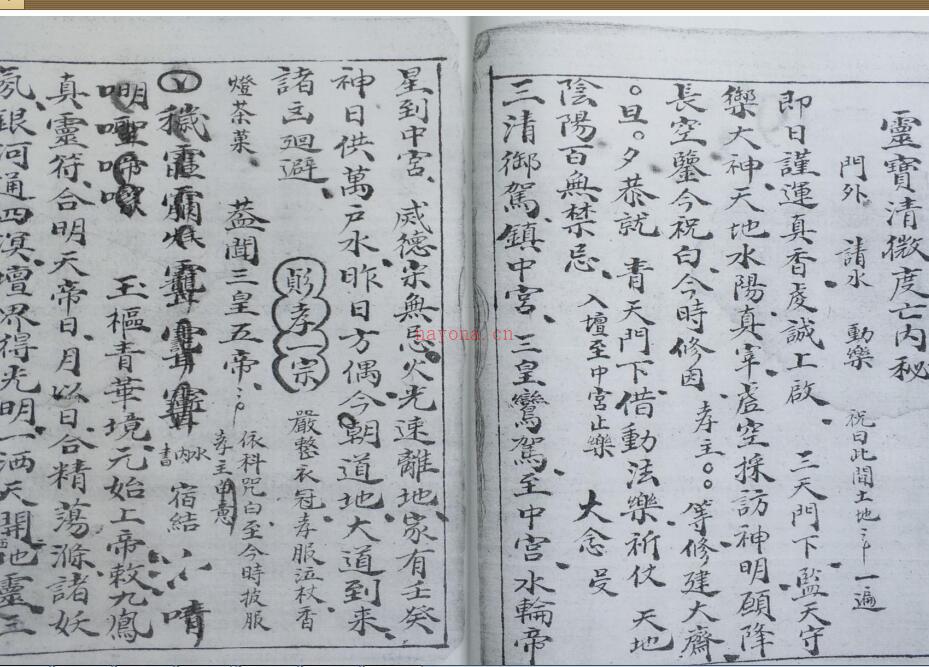 靈寶清微度亡内秘
門外 請水 動樂 祝曰此間土地 一遍
即日謹運真香虔誠上啟 三天門下監天守
禦大神天地水陽真宰虛空採訪神明願降
長空鑒今祝白今時修因 孝主。。等修建大齋
。旦。夕恭就 青天門下借動法樂祈仗 天地
陰陽百無禁忌 入壇至中宮止樂 大念
三清御駕鎮中宮三皇鸞駕至中宮水輪帝
星到中宮威德宗無忌火光速離地家有壬癸
神日供萬戶水昨日方偶今朝道地大道到来
諸凶迴避 孝 宗 嚴整衣冠孝服泣杖香
燈茶菓 蓋聞三皇五帝 依科咒白至今時披服
孝主
穢 水内書 宿結
玉樞青華境元始上帝敕九鳳
真靈符合明天帝日月以日合精蕩滌諸妖
氛銀河通四溟壇界得光明一洒天開地靈三
hayona.cn